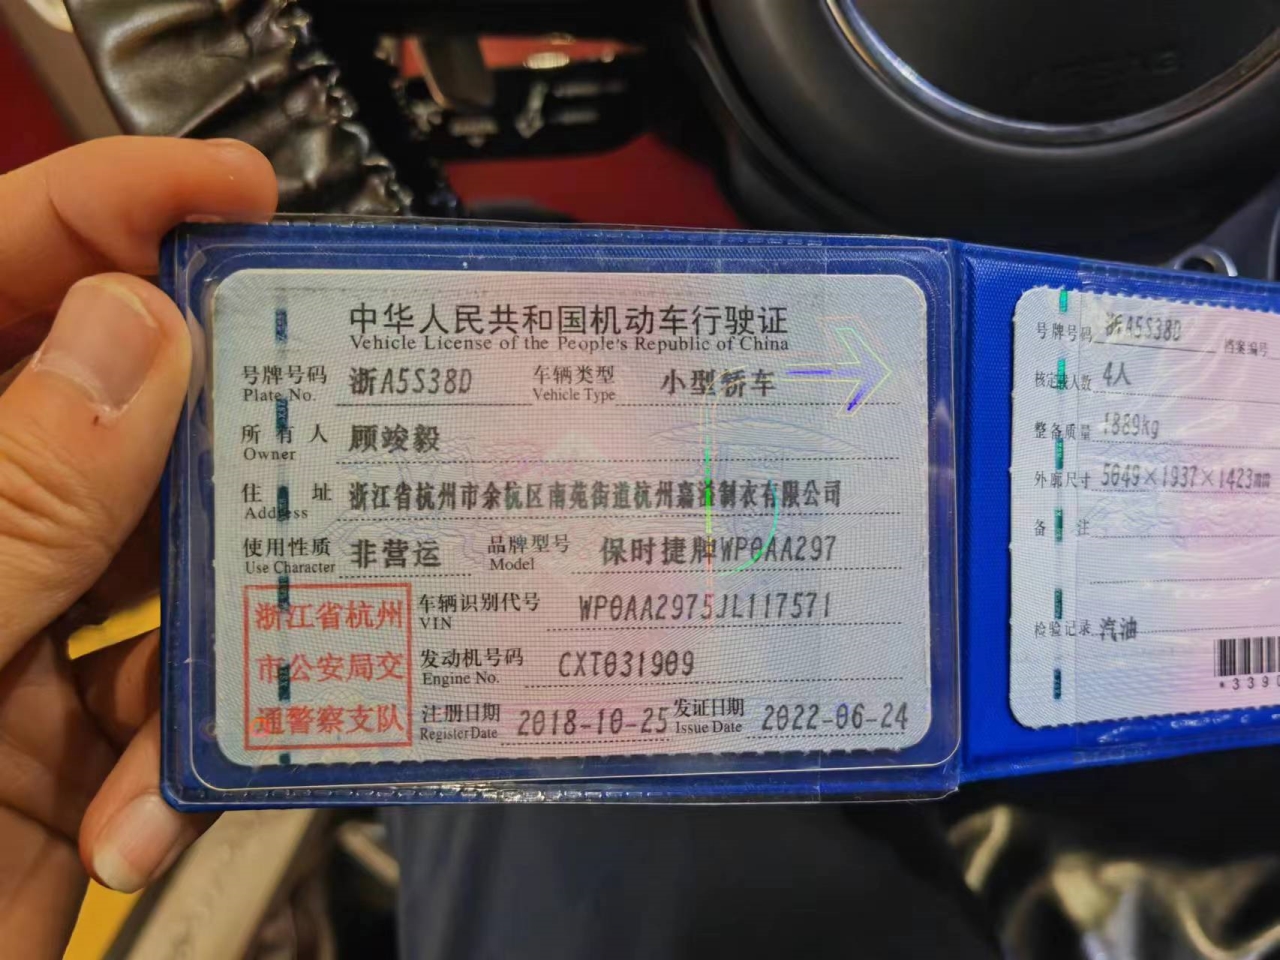 中华人民共和国机动车行驶证
Vehicle License of the People's Republic of China
号牌号码 浙A5S38D 车辆类型 小型轿车
Plate No. Vehicle Type
所有人 顾竣毅
Owner
住址 浙江省杭州市余杭区南苑街道杭州嘉溢制衣有限公司
Address
使用性质 非营运 品牌型号 保时捷牌WP0AA297
Use Character Model
浙江省杭州
市公安局交
通警察支队
车辆识别代号 WP0AA2975JL117571
VIN
发动机号码 CXT031909
Engine No.
注册日期 2018-10-25 发证日期 2022-06-24
Register Date Issue Date
号牌号码 浙A5S38D 档案编号
核定载人数 4人
整备质量 1889kg
外廓尺寸 5049×1937×1423mm
备注
检验记录 汽油
*3390